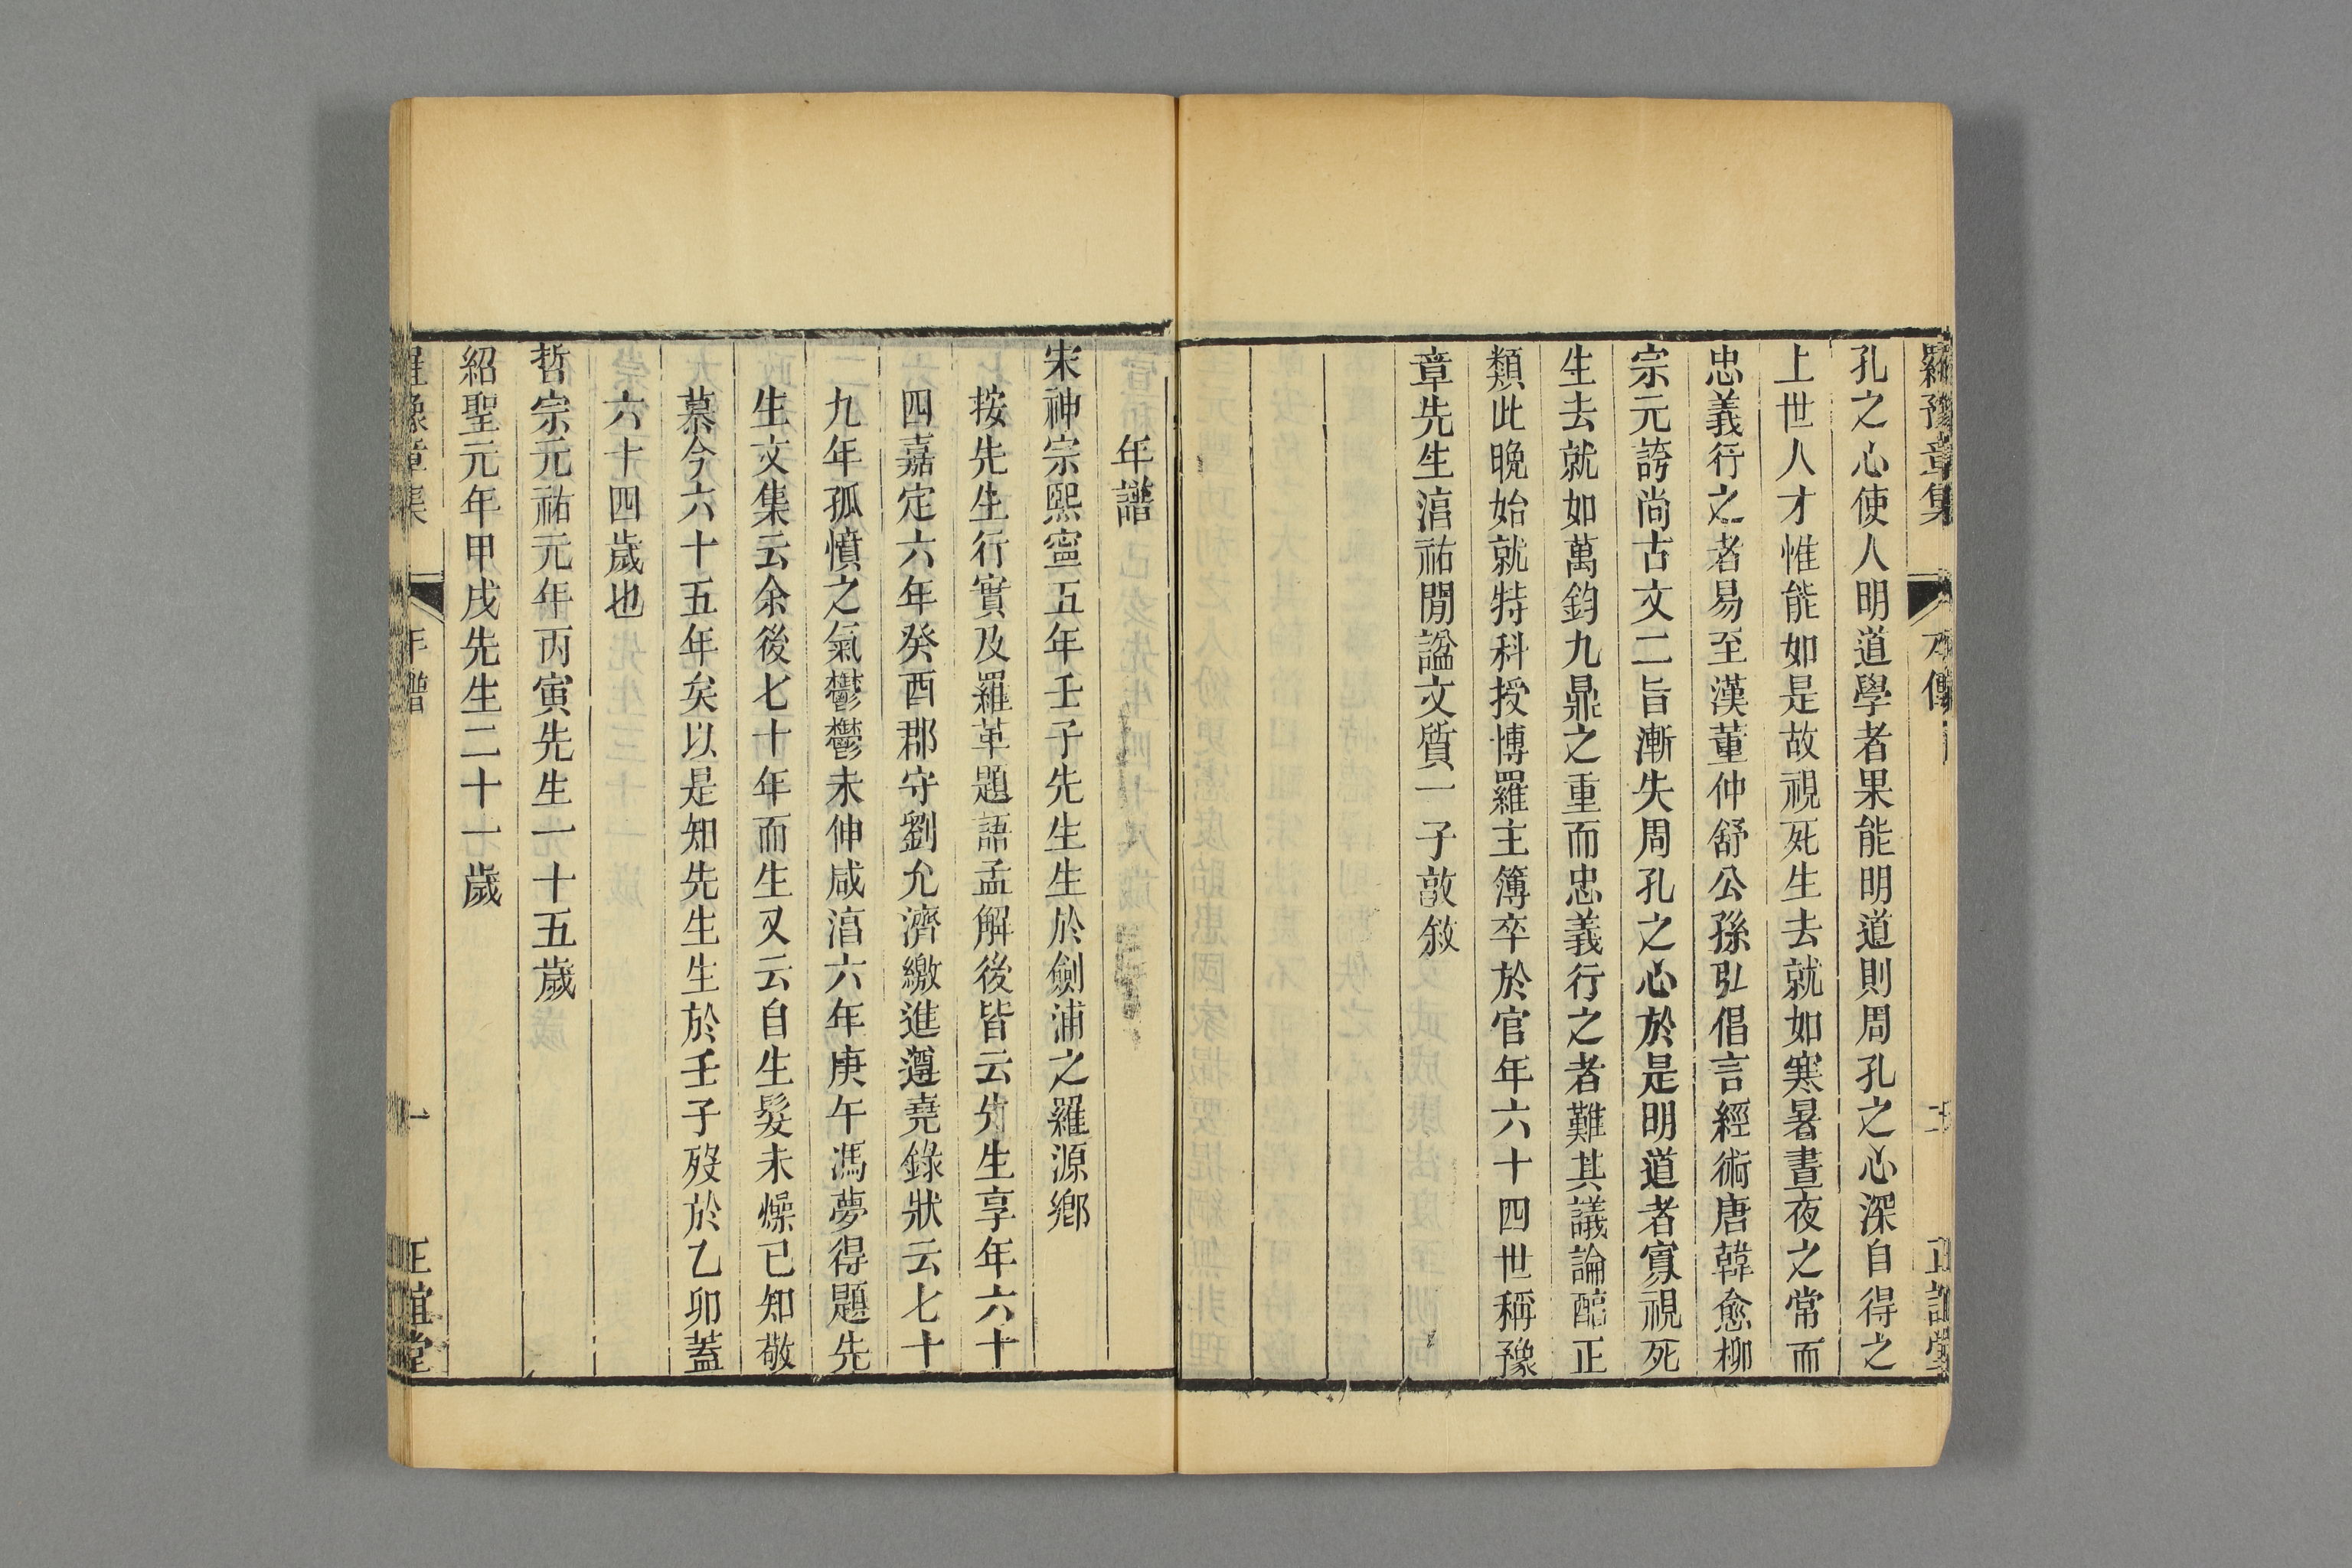 羅豫章集 本傳 二 正誼堂
孔之心使人明道學者果能明道則周孔之心深自得之
上世人才惟能如是故視死生去就如寒暑晝夜之常而
忠義行之者易至漢董仲舒公孫弘倡言經術唐韓愈柳
宗元誇尚古文二旨漸失周孔之心於是明道者寡視死
生去就如萬鈞九鼎之重而忠義行之者難其議論醇正
類此晚始就特科授博羅主簿卒於官年六十四世稱豫
章先生湻祐閒諡文質一子敦敘
年譜
宋神宗熙寧五年壬子先生生於劍浦之羅源鄉
按先生行實及羅革題語孟解後皆云先生享年六十
四嘉定六年癸酉郡守劉允濟繳進遵堯錄狀云七十
九年孤憤之氣鬱鬱未伸咸湻六年庚午馮夢得題先
生文集云余後七十年而生又云自生髮未燥已知敬
慕今六十五年矣以是知先生生於壬子歿於乙卯蓋
六十四歲也
哲宗元祐元年丙寅先生一十五歲
紹聖元年甲戌先生二十一歲
羅豫章集 年譜 一 正誼堂